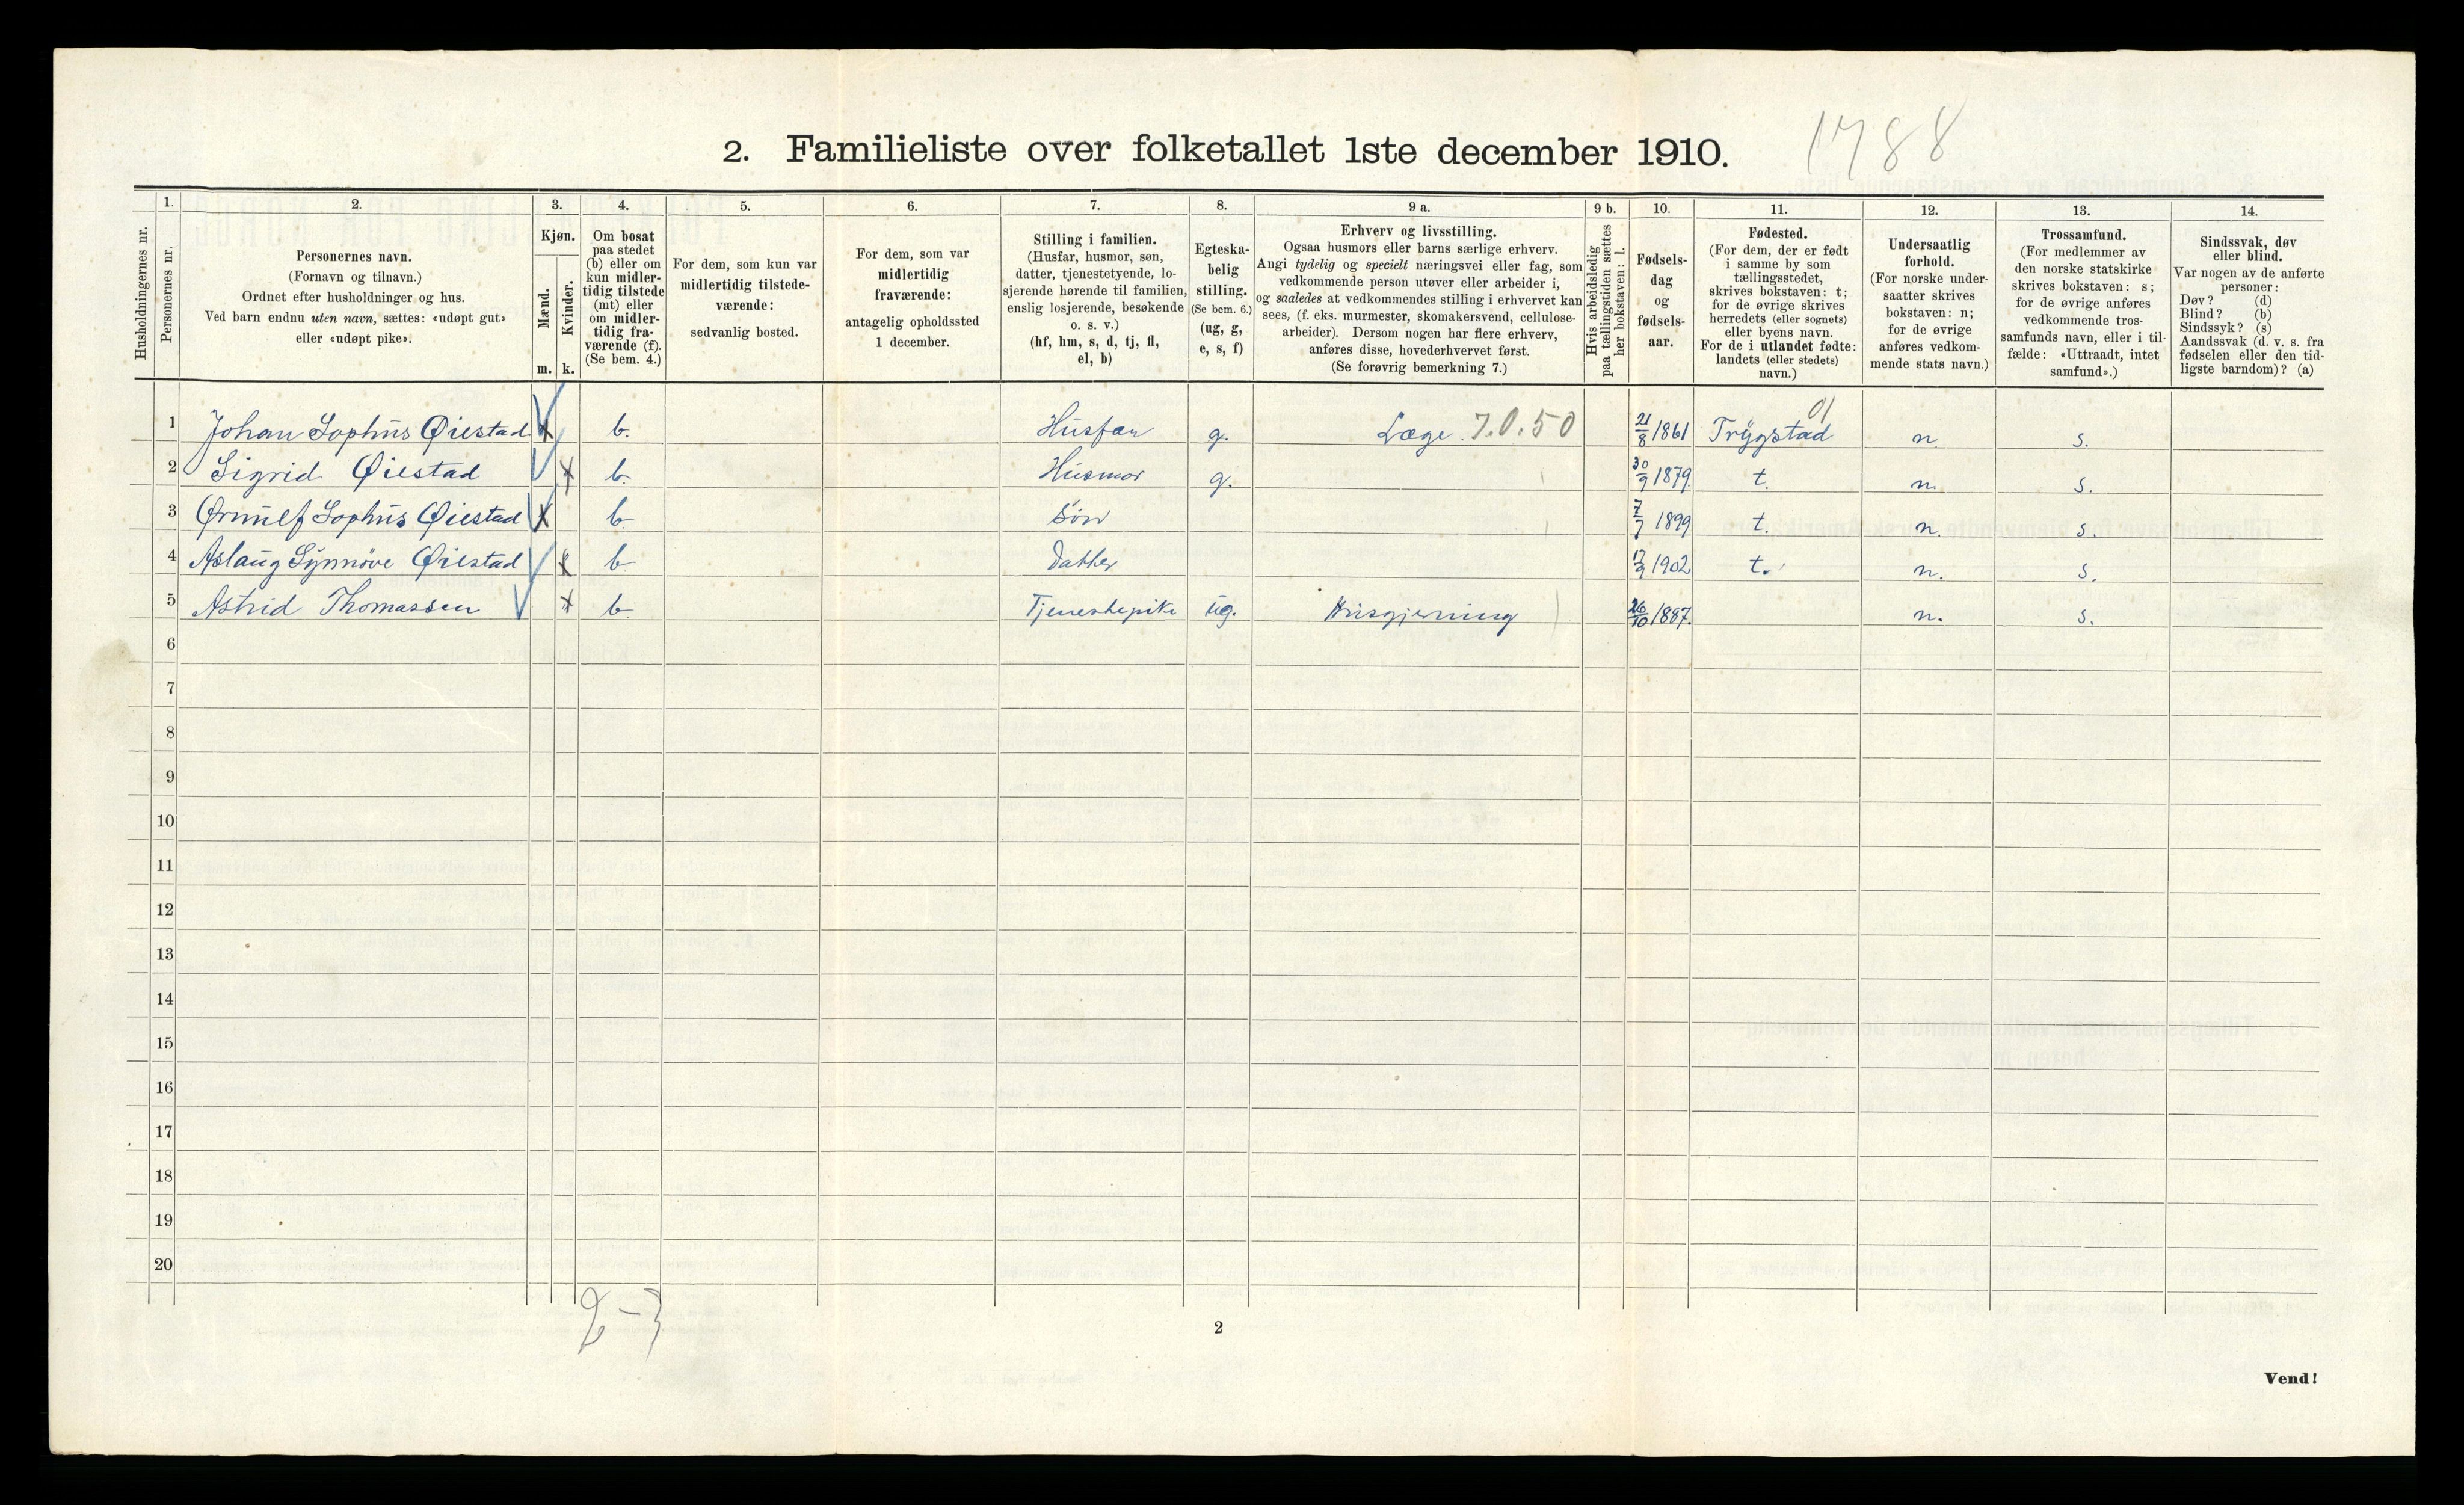 1788
2. Familieliste over folketallet 1ste december 1910.
Husholdningernes nr.
1.
Personernes nr.
2.
Personernes navn.
(Fornavn og tilnavn.)
Ordnet efter husholdninger og hus.
Ved barn endnu uten navn, sættes: «udøpt gut»
eller «udøpt pike».
3.
Kjøn.
Mænd.
Kvinder.
m. k.
4.
Om bosat
paa stedet
(b) eller om
kun midler-
tidig tilstede
(mt) eller
om midler-
tidig fra-
værende (f).
(Se bem. 4.)
5.
For dem, som kun var
midlertidig tilstede-
værende:
sedvanlig bosted.
6.
For dem, som var
midlertidig
fraværende:
antagelig opholdssted
1 december.
7.
Stilling i familien.
(Husfar, husmor, søn,
datter, tjenestetyende, lo-
sjerende hørende til familien,
enslig losjerende, besøkende
o. s. v.)
(hf, hm, s, d, tj, fl,
el, b)
8.
Egteska-
belig
stilling.
(Se bem. 6.)
(ug, g,
e, s, f)
9 a.
Erhverv og livsstilling.
Ogsaa husmors eller barns særlige erhverv.
Angi tydelig og specielt næringsvei eller fag, som
vedkommende person utøver eller arbeider i,
og saaledes at vedkommendes stilling i erhvervet kan
sees, (f. eks. murmester, skomakersvend, cellulose-
arbeider). Dersom nogen har flere erhverv,
anføres disse, hovederhvervet først.
(Se forøvrig bemerkning 7.)
9 b.
Hvis arbeidsledig
paa tællingstiden sættes
her bokstaven: l.
10.
Fødsels-
dag
og
fødsels-
aar.
11.
Fødested.
(For dem, der er født
i samme by som
tællingsstedet,
skrives bokstaven: t;
for de øvrige skrives
herredets (eller sognets)
eller byens navn.
For de i utlandet fødte:
landets (eller stedets)
navn.)
12.
Undersaatlig
forhold.
(For norske under-
saatter skrives
bokstaven: n;
for de øvrige
anføres vedkom-
mende stats navn.)
13.
Trossamfund.
(For medlemmer av
den norske statskirke
skrives bokstaven: s;
for de øvrige anføres
vedkommende tros-
samfunds navn, eller i til-
fælde: «Uttraadt, intet
samfund».)
14.
Sindssvak, døv
eller blind.
Var nogen av de anførte
personer:
Døv? (d)
Blind? (b)
Sindssyk? (s)
Aandssvak (d. v. s. fra
fødselen eller den tid-
ligste barndom)? (a)
01
1 Johan Sophus Øiestad x b. Husfar g. Læge 7.0.50 21/8 1861 Trygstad n s.
2 Sigrid Øiestad x b. Husmor g. 30/9 1879. t. n. s.
3 Ørnulf Sophus Øiestad x b. Søn 7/7 1899 t. n. s.
4 Aslaug Synnøve Øiestad x b Datter 17/9 1902 t. n. s.
5 Astrid Thomassen x b. Tjenestepike ug. Husgjerning 26/10 1887. n. s.
6
7
8
9
10
11
12
13
14
15
16
17
18
19
20
2-3
2
Vend!